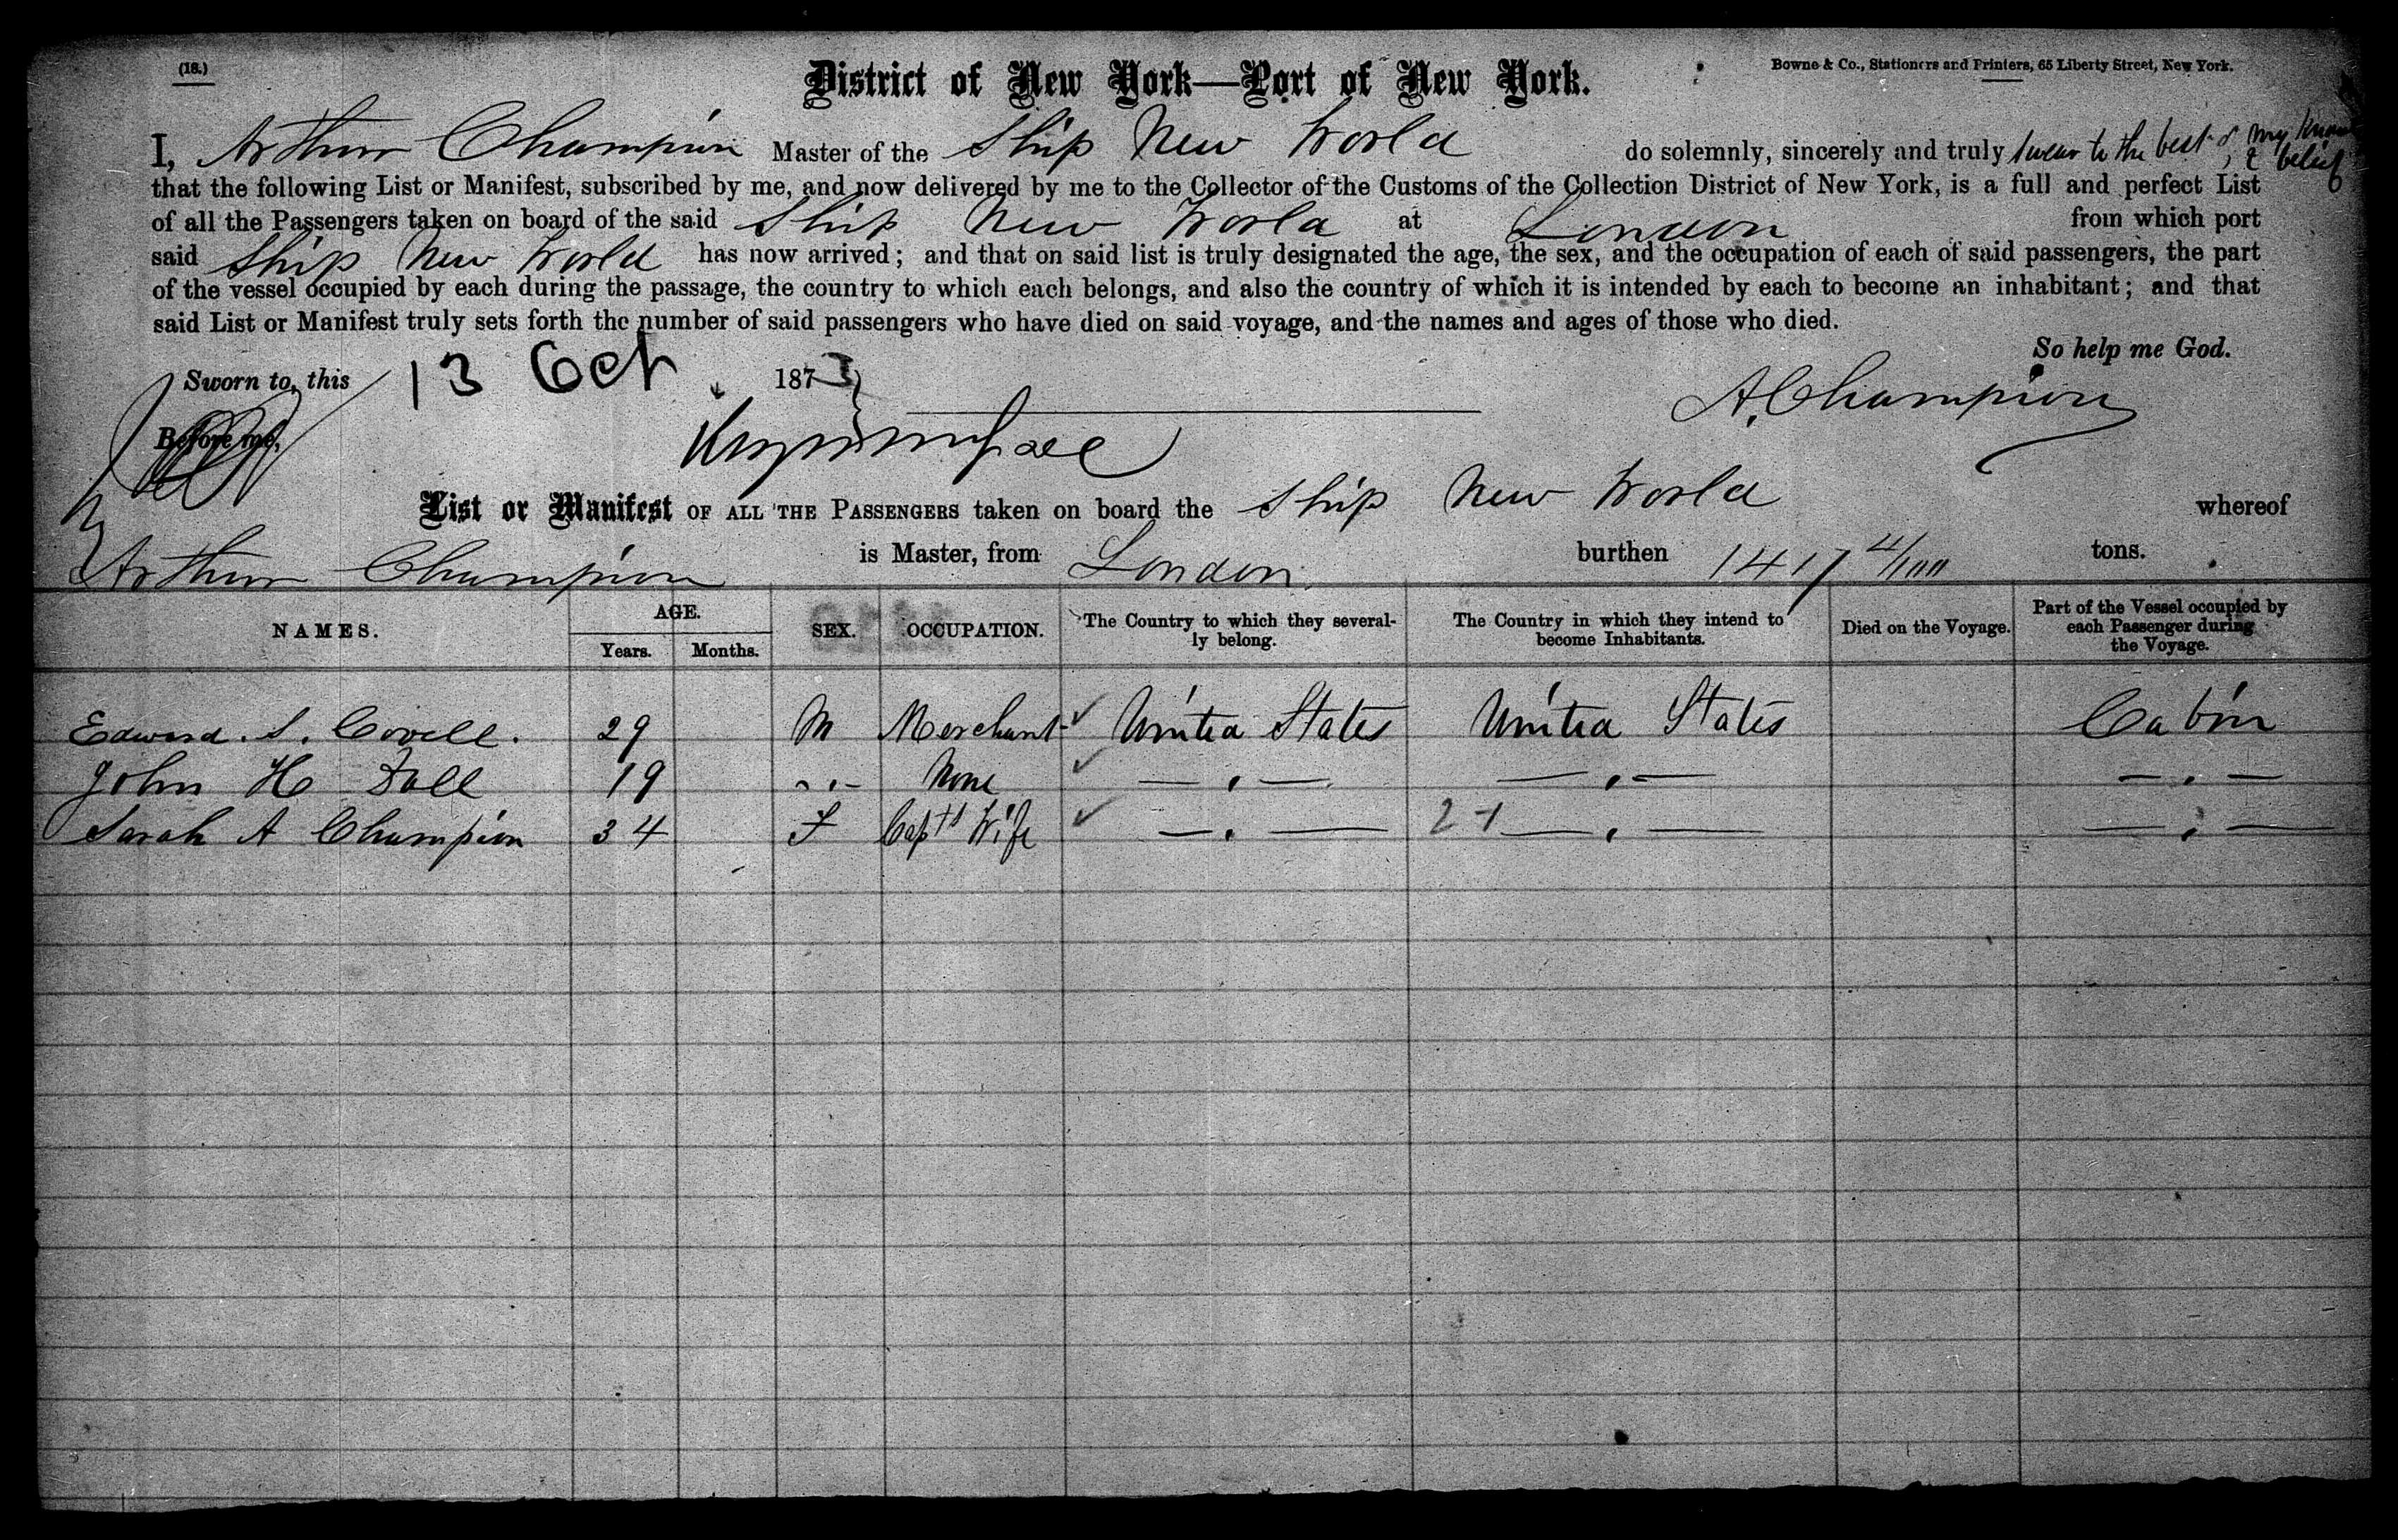 (18.)
District of New York—Port of New York.
Bowne & Co., Stationers and Printers, 65 Liberty Street, New York.
I, Arthur Champion Master of the Ship New World do solemnly, sincerely and truly swear to the best of my & belief
that the following List or Manifest, subscribed by me, and now delivered by me to the Collector of the Customs of the Collection District of New York, is a full and perfect List
of all the Passengers taken on board of the said Ship New World at London from which port
said Ship New World has now arrived; and that on said list is truly designated the age, the sex, and the occupation of each of said passengers, the part
of the vessel occupied by each during the passage, the country to which each belongs, and also the country of which it is intended by each to become an inhabitant; and that
said List or Manifest truly sets forth the number of said passengers who have died on said voyage, and the names and ages of those who died.
So help me God.
Sworn to, this 13 Oct 1873
A. Champion
Before me,
List or Manifest OF ALL THE PASSENGERS taken on board the Ship New World whereof
Arthur Champion is Master, from London burthen 1417 4/100 tons.
NAMES. AGE. Years. Months. SEX. OCCUPATION. The Country to which they severally belong. The Country in which they intend to become Inhabitants. Died on the Voyage. Part of the Vessel occupied by each Passenger during the Voyage.
Edward S. Covell. 29 M Merchant United States United States Cabin
John H 19 None
Sarah A Champion 34 F Capts Wife 21